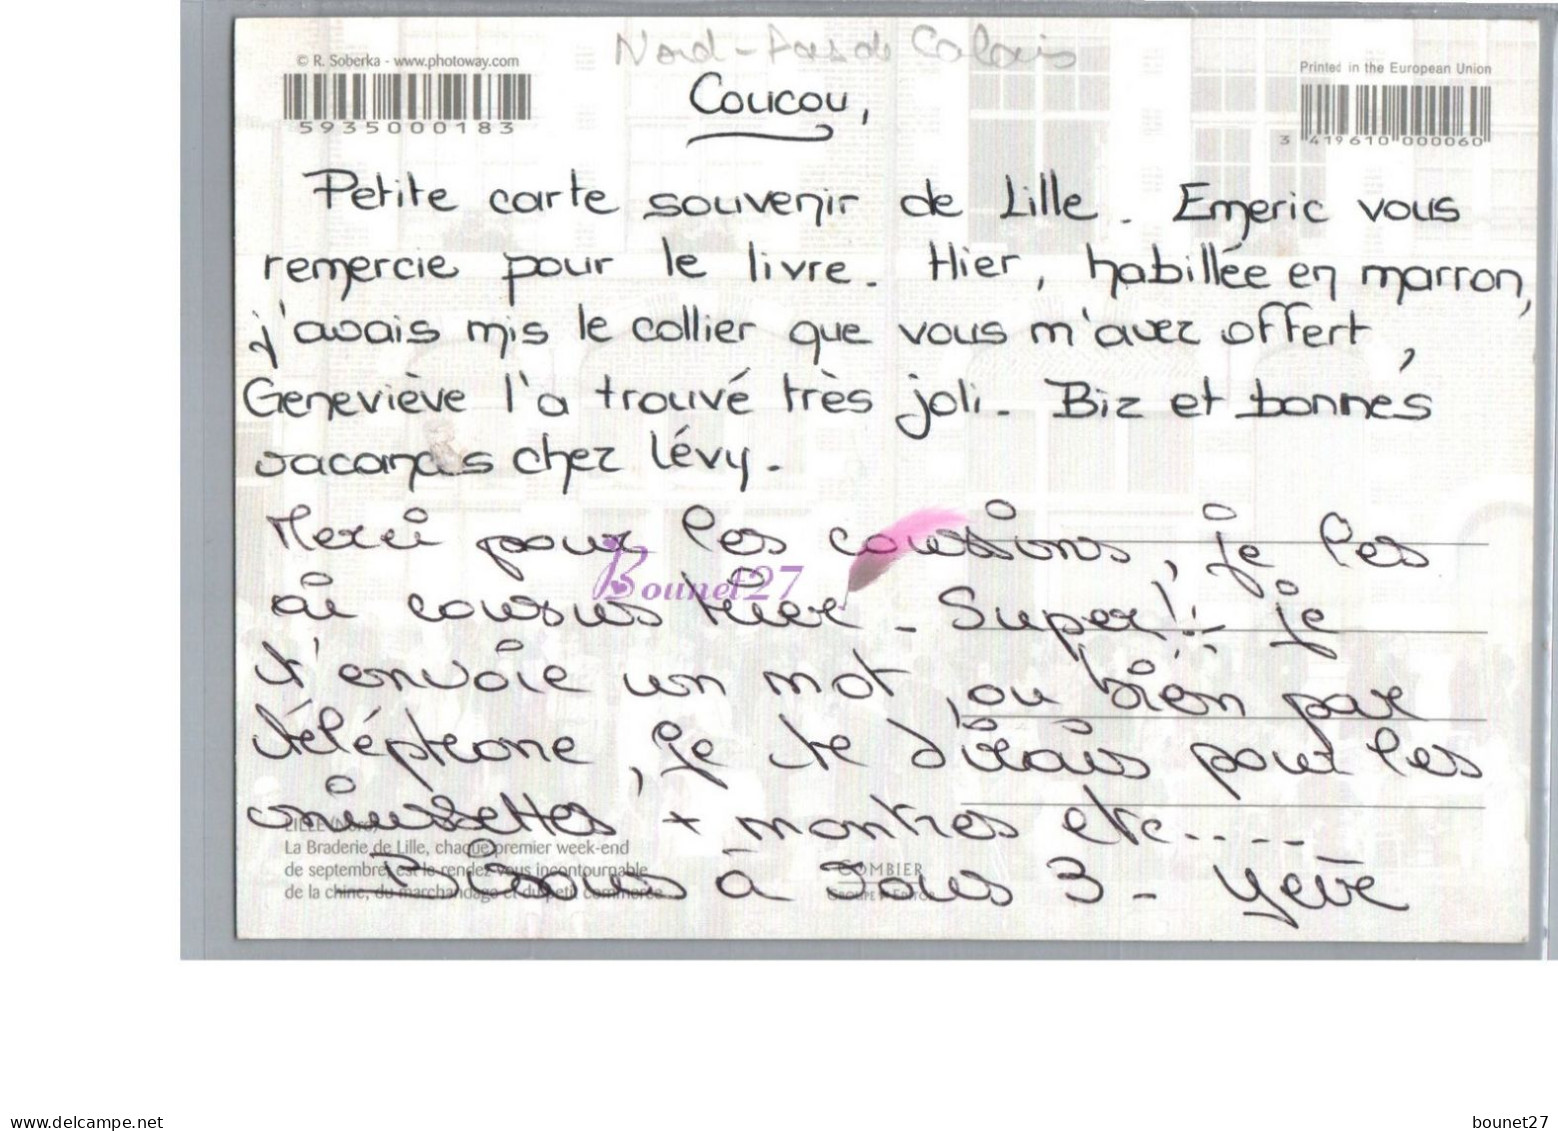 Nord-Pas de Calais
© R. Soberka - www.photoway.com
5935000183
Printed in the European Union
3 419610 000060
Coucou,
Petite carte souvenir de Lille. Emeric vous
remercie pour le livre. Hier, habillée en marron,
j'avais mis le collier que vous m'avez offert,
Geneviève l'a trouvé très joli. Biz et bonnes
vacances chez Lévy.
Merci pour les coussins, je les
ai cousus hier - Super!! je
t'envoie un mot, ou bien par
téléphone, je te dirais pour les
+ montres etc.....
Bisous à vous 3 - Yève
Bounet27
LILLE (Nord)
La Braderie de Lille, chaque premier week-end
de septembre, est le rendez-vous incontournable
de la chine, du marchandage et du petit commerce.
COMBIER
bounet27.delcampe.net
bounet27